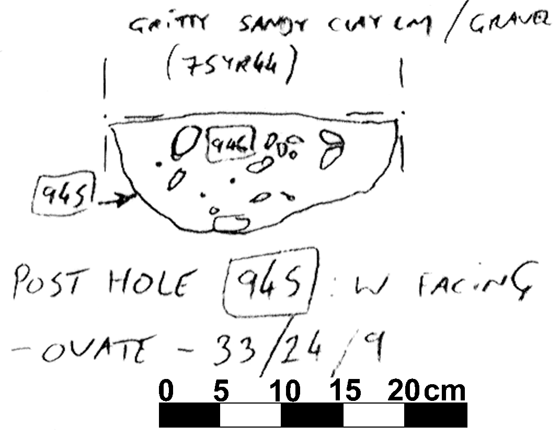 GRITTY SANDY CLAY LM / GRAVEL
(75YR44)
945
945
POST HOLE 945 : W FACING
- OVATE - 33/24/9
0 5 10 15 20 cm